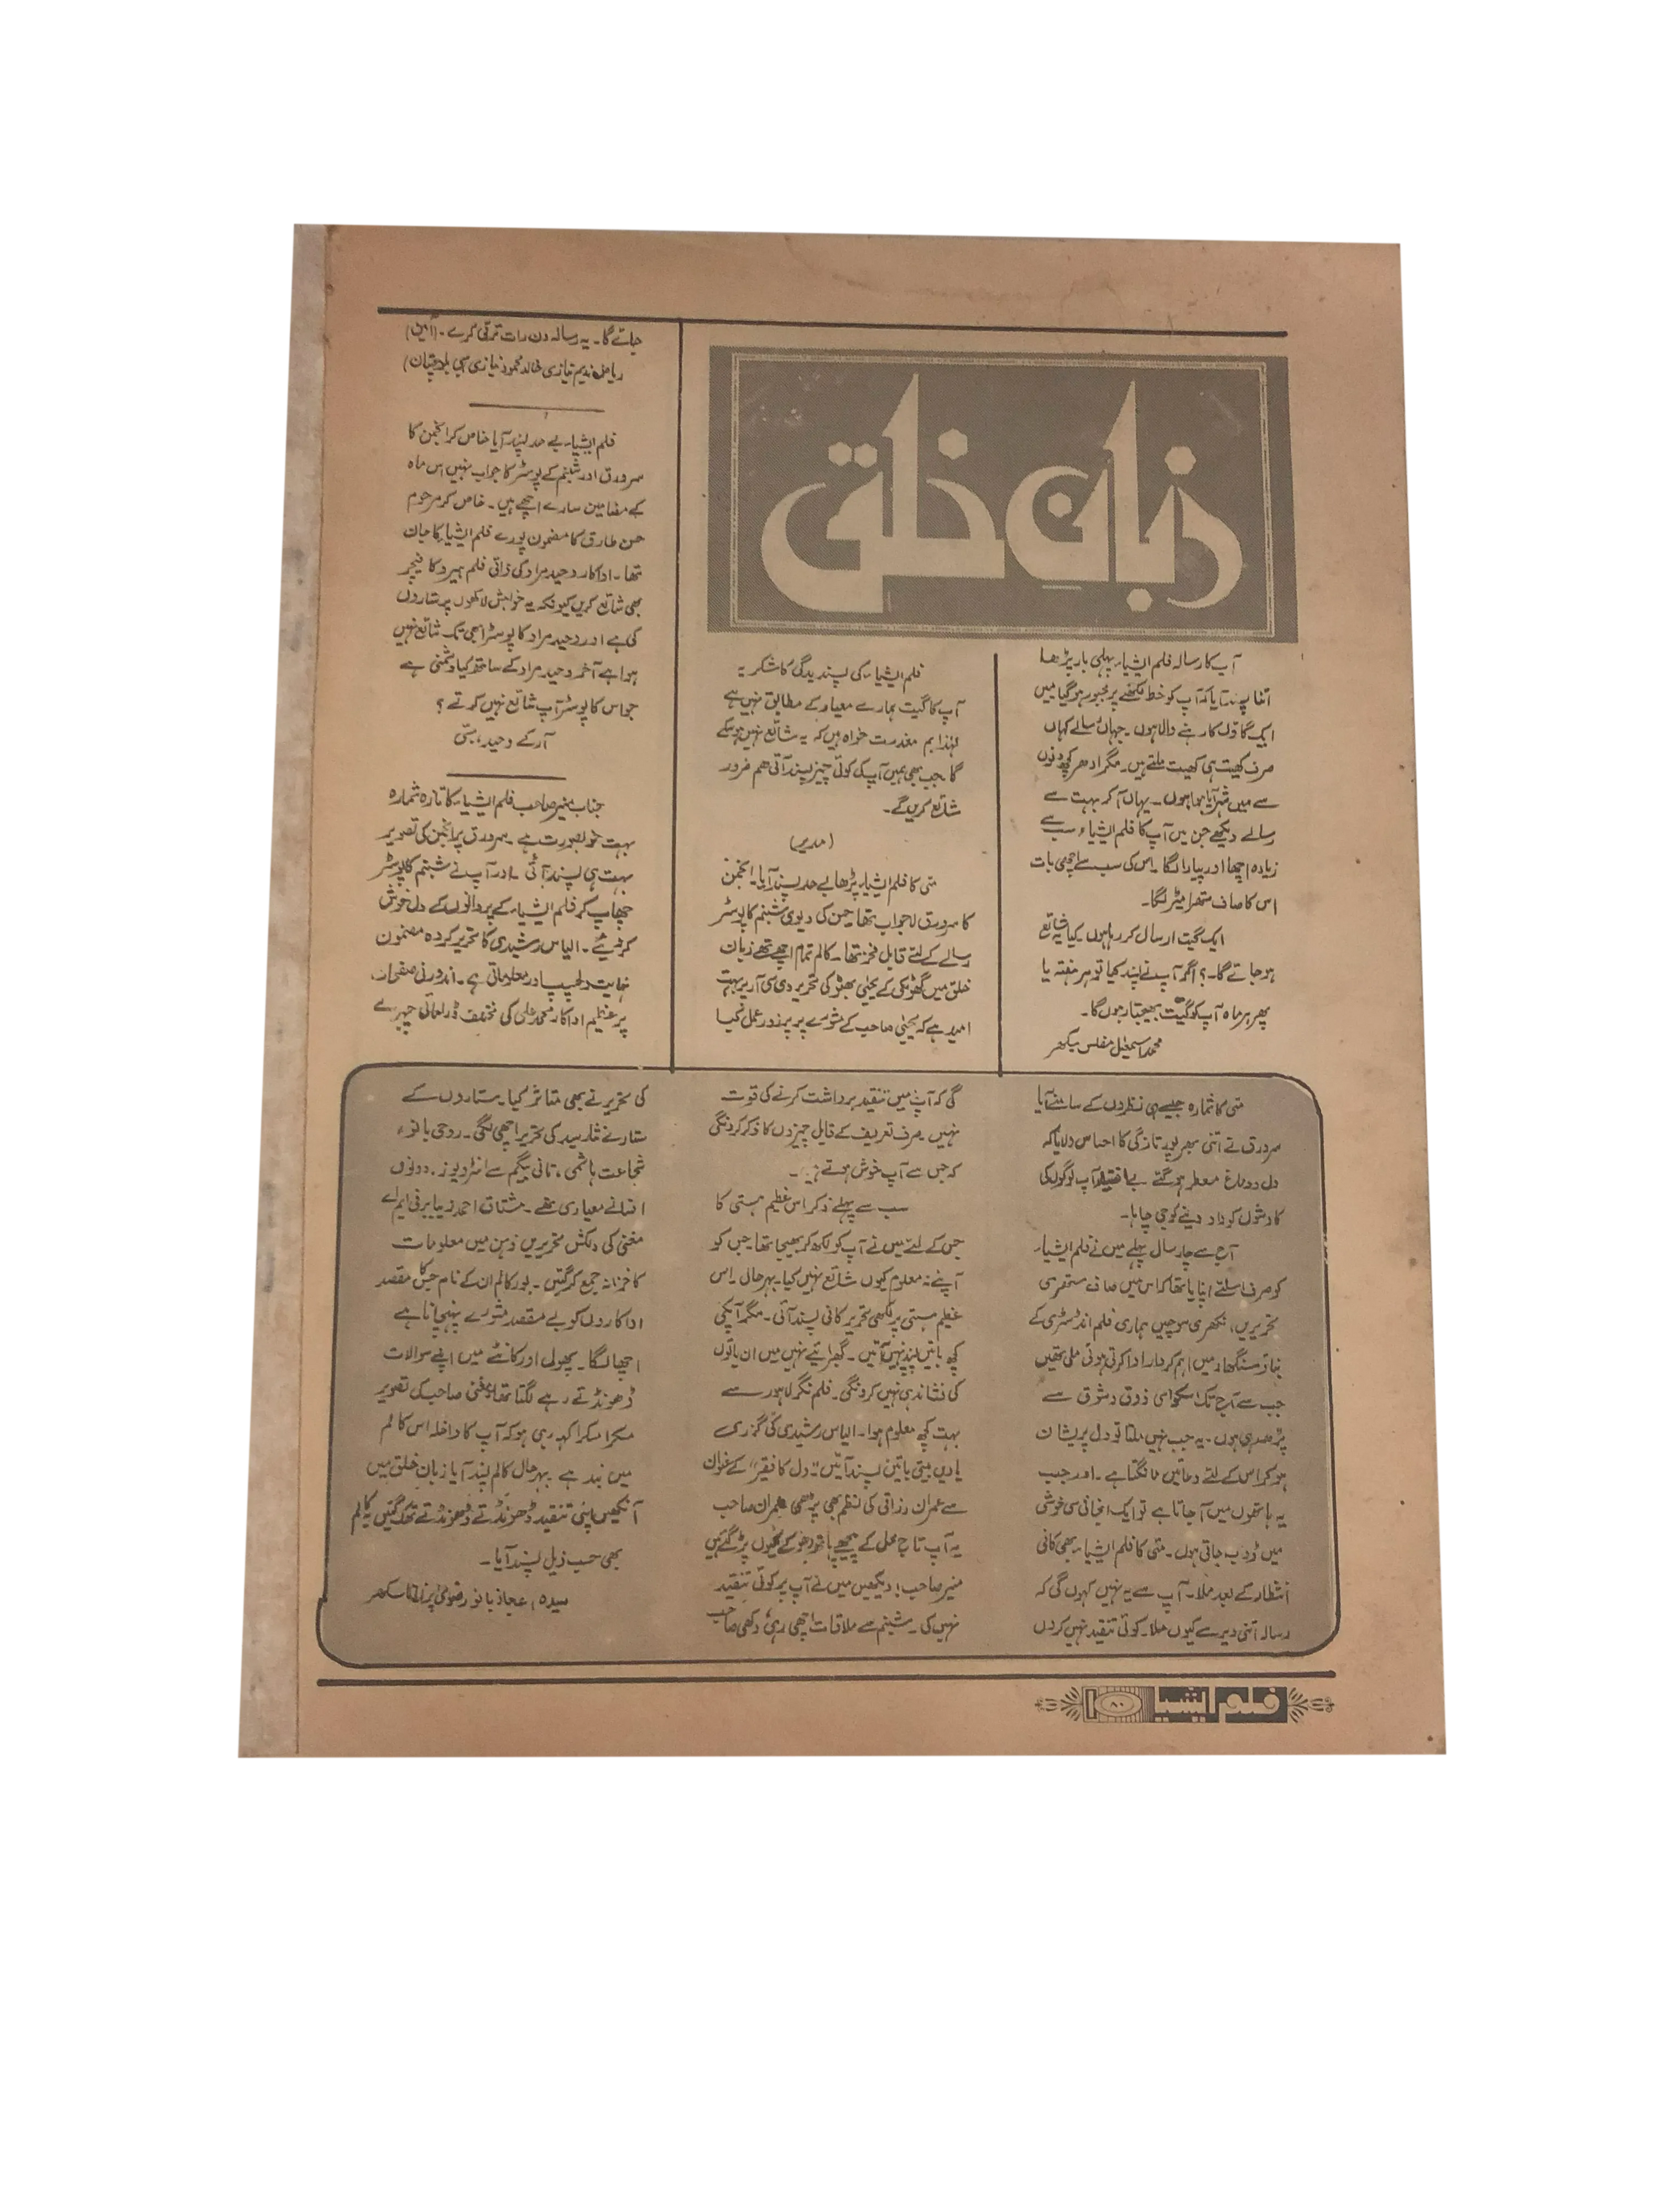 زبان خلق
آپ کا رسالہ فلم ایشیاء پہلی بار پڑھا
اتنا پسند آیا کہ آپ کو خط لکھنے پر مجبور ہو گیا میں
ایک گاؤں کا رہنے والا ہوں۔ جہاں رسالے کہاں
صرف کھیت ہی کھیت ملتے ہیں۔ مگر ادھر کچھ دنوں
سے میں شہر آیا ہوا ہوں۔ یہاں آ کر بہت سے
رسالے دیکھے جن میں آپ کا فلم ایشیاء سب سے
زیادہ اچھا اور پیارا لگا۔ اس کی سب سے اچھی بات
اس کا صاف ستھرا میٹر لگا۔
ایک گیت ارسال کر رہا ہوں کیا یہ شائع
ہو جائے گا۔؟ اگر آپ نے پسند کیا تو ہر ہفتہ یا
پھر ہر ماہ آپ کو گیت بھیجتا رہوں گا۔
محمد اسمعیل مفلس
فلم ایشیاء کی پسندیدگی کا شکریہ
آپ کا گیت ہمارے معیار کے مطابق نہیں ہے
لہٰذا ہم معذرت خواہ ہیں کہ یہ شائع نہیں ہو سکے
گا جب بھی ہمیں آپ کی کوئی چیز پسند آئی ھم ضرور
شائع کریں گے۔
(مدیر)
مئی کا فلم ایشیاء پڑھا بے حد پسند آیا۔ انجمن
کا سرورق لاجواب تھا۔ حسن کی دیوی شبنم کا پوسٹر
رسالے کے لئے قابل فخر تھا۔ کالم تمام اچھے تھے زبان
خلق میں گھوٹکی کے یحیٰی بھٹو کی تحریر وی سی آر پر بہت
امید ہے کہ یحیٰی صاحب کے مشورے پر پرزور عمل کیا
جائے گا۔ یہ رسالہ دن رات ترقی کرے۔ (آمین)
ریاض ندیم نیازی خالد محمود نیازی سبی بلوچستان)
فلم ایشیاء بے حد پسند آیا خاص کر انجمن کا
سرورق اور شبنم کے پوسٹر کا جواب نہیں اس ماہ
کے مضامین سارے اچھے ہیں۔ خاص کر مرحوم
حسن طارق کا مضمون پورے فلم ایشیاء کا جان
تھا۔ اداکار وحید مراد کی ذاتی فلم ہیرو کا فیچر
بھی شائع کریں کیونکہ یہ خواہش لاکھوں پرستاروں
کی ہے اور وحید مراد کا پوسٹر ابھی تک شائع نہیں
ہوا ہے آخر وحید مراد کے ساتھ کیا دشمنی ہے
جو اس کا پوسٹر آپ شائع نہیں کرتے؟
آر کے وحید، سبّی
جناب منیر صاحب فلم ایشیاء کا تازہ شمارہ
بہت خوبصورت ہے۔ سرورق پر انجمن کی تصویر
بہت ہی پسند آئی۔ اور آپ نے شبنم کا پوسٹر
چھاپ کر فلم ایشیاء کے پروانوں کے دل خوش
کر دیئے۔ الیاس رشیدی کا تحریر کردہ مضمون
نہایت دلچسپ اور معلوماتی ہے۔ اندرونی صفحات
پر عظیم اداکار محمد علی کی مختلف ڈرامائی چہرے
مئی کا شمارہ جیسے ہی نظروں کے سامنے آیا
سرورق نے اتنی بھرپور تازگی کا احساس دلایا کہ
دل و دماغ معطر ہو گئے بے اختیار آپ لوگوں کی
کاوشوں کو داد دینے کو جی چاہا۔
آج سے چار سال پہلے میں نے فلم ایشیاء
کو صرف اسلئے اپنایا تھا کہ اس میں صاف ستھری
تحریریں، نکھری سوچیں ہماری فلم انڈسٹری کے
بناؤ سنگھار میں اہم کردار ادا کرتی ہوئی ملی تھیں
جب سے آج تک اسکو اسی ذوق و شوق سے
پڑھ رہی ہوں۔ یہ جب نہیں ملتا تو دل پریشان
ہو کر اس کے لئے دعائیں مانگتا ہے۔ اور جب
یہ ہاتھوں میں آ جاتا ہے تو ایک انجانی سی خوشی
میں ڈوب جاتی ہوں۔ مئی کا فلم ایشیاء بھی کافی
انتظار کے بعد ملا۔ آپ سے یہ نہیں کہوں گی کہ
رسالہ اتنی دیر سے کیوں ملا۔ کوئی تنقید نہیں کروں
گی کہ آپ میں تنقید برداشت کرنے کی قوت
نہیں۔ صرف تعریف کے قابل چیزوں کا ذکر کرونگی
کہ جس سے آپ خوش ہوتے ہیں۔
سب سے پہلے ذکر اس عظیم ہستی کا
جس کے لئے میں نے آپ کو لکھ کر بھیجا تھا۔ جس کو
آپنے نہ معلوم کیوں شائع نہیں کیا۔ بہرحال اس
عظیم ہستی پر لکھی تحریر کافی پسند آئی۔ مگر آپکی
کچھ باتیں پسند نہیں آئیں۔ گھبرائیے نہیں میں ان باتوں
کی نشاندہی نہیں کرونگی۔ فلم نگر لاہور سے
بہت کچھ معلوم ہوا۔ الیاس رشیدی کی گزری
یادیں بیتی باتیں پسند آئیں۔ "دل کا فقیر" کے عنوان
سے عمران رزاقی کی نظم بھی پڑھی عمران صاحب
یہ آپ تاج محل کے پیچھے ہاتھ دھو کے کیوں پڑ گئے ہیں
منیر صاحب! دیکھیں میں نے آپ پر کوئی تنقید
نہیں کی۔ شبنم سے ملاقات اچھی رہی، دکھی صاحب
کی تحریر نے بھی متاثر کیا۔ ستاروں کے
ستارے نثار سید کی تحریر اچھی لگی۔ روحی بانو،
شجاعت ہاشمی، تانی بیگم سے انٹرویوز۔ دونوں
افسانے معیاری تھے۔ مشتاق احمد زیبا برنی ایم اے
مغنی کی دلکش تحریریں ذہن میں معلومات
کا خزانہ جمع کر گئیں۔ بور کالم ان کے نام جس کا مقصد
اداکاروں کو بے مقصد مشورے پہنچانا ہے
اچھا لگا۔ پھول اور کانٹے میں اپنے سوالات
ڈھونڈتے رہے لگتا تھا غنی صاحب کی تصویر
مسکرا مسکرا کہہ رہی ہو کہ آپ کا داخلہ اس کالم
میں بند ہے بہرحال کالم پسند آیا زبان خلق میں
آنکھیں اپنی تنقید ڈھونڈتے ڈھونڈتے تھک گئیں یہ کالم
بھی حسب ذیل پسند آیا۔
سیدہ اعجاز بانو رضوی سکھر
فلم ایشیا ۸۰